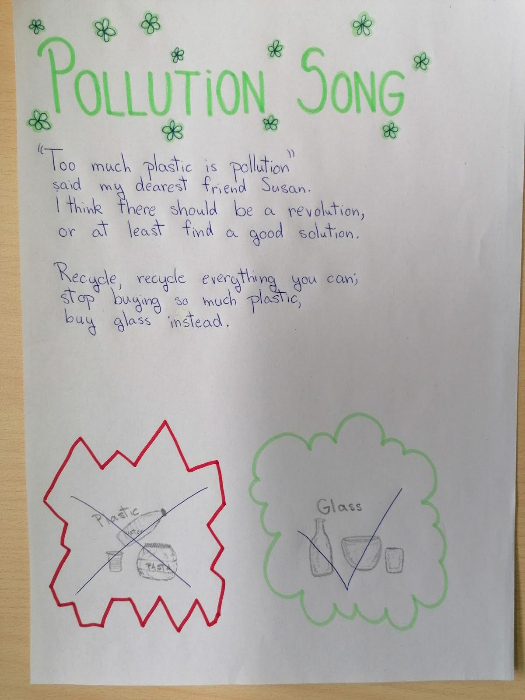 POLLUTION SONG
"Too much plastic is pollution"
said my dearest friend Susan.
I think there should be a revolution,
or at least find a good solution.
Recycle, recycle everything you can;
stop buying so much plastic,
buy glass instead.
Plastic
PASTA
Glass